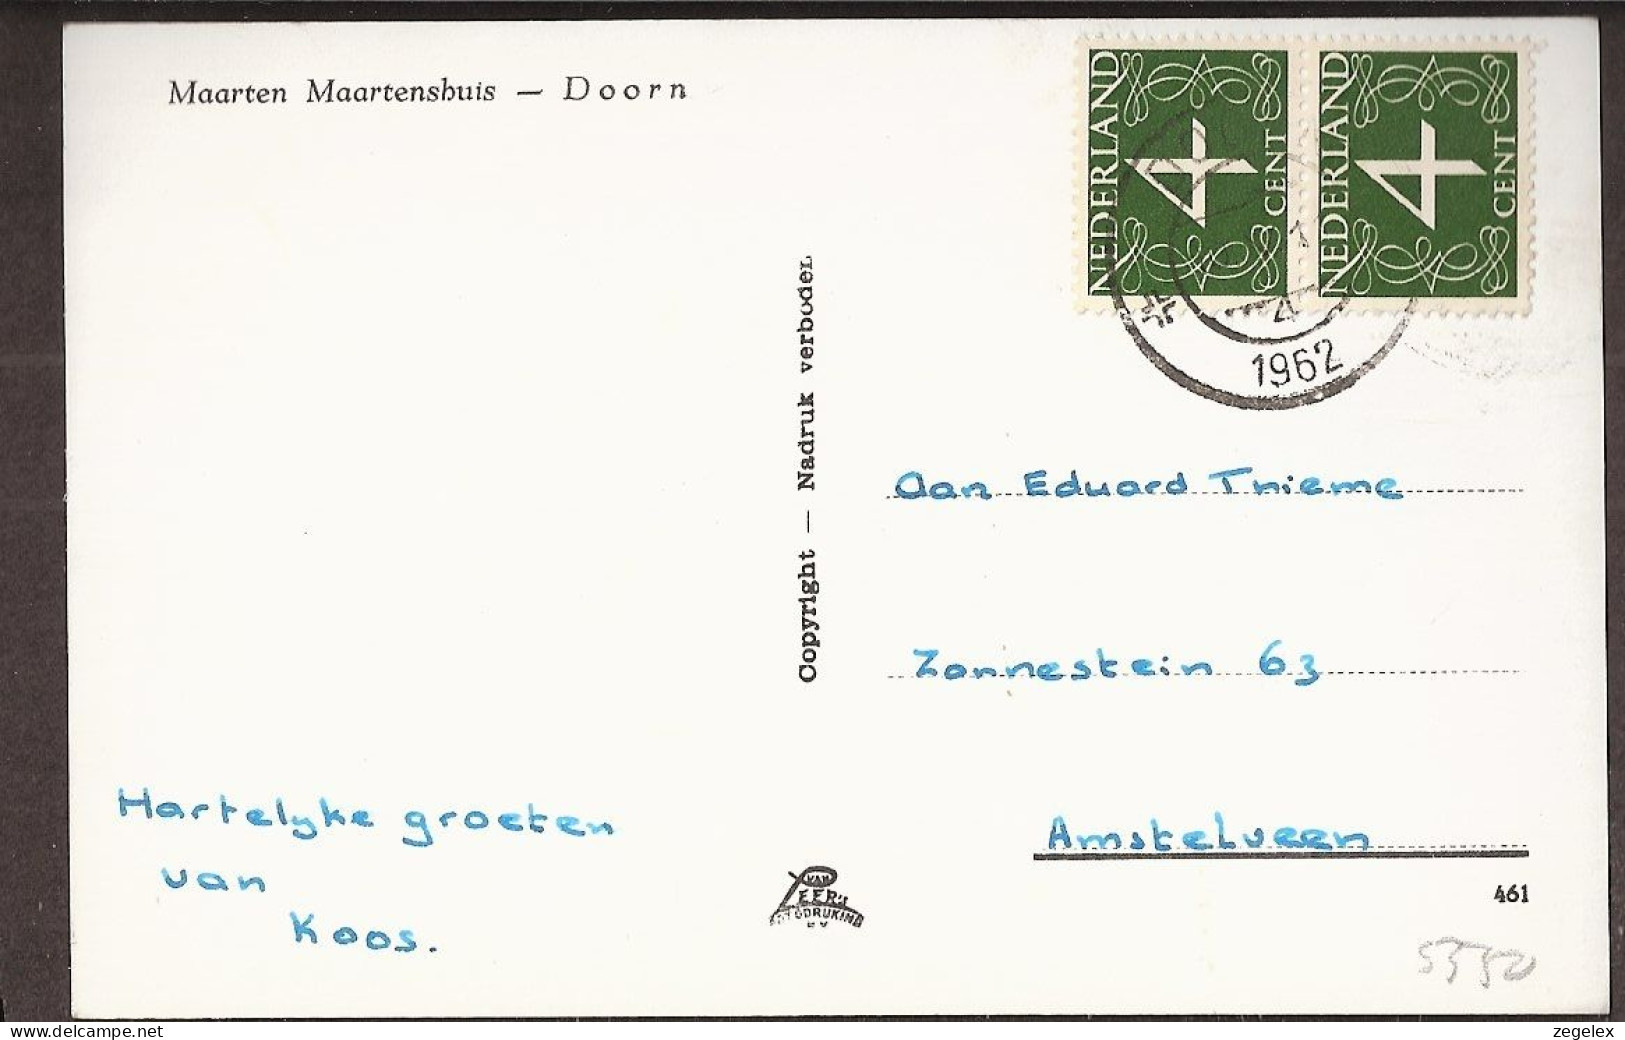 Maarten Maartenshuis — Doorn
NEDERLAND
4
CENT
NEDERLAND
4
CENT
1
4
1962
Copyright — Nadruk verboden
Aan Eduard Thieme
Zonnestein 63
Amstelveen
Hartelyke groeten
van
Koos.
VAN
LEER's
FOTODRUKIND
N.V.
461
delcampe.net
zegelex